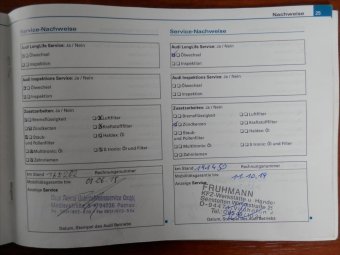 Nachweise 25
Service-Nachweise
Audi LongLife Service: Ja / Nein
Ölwechsel
Inspektion
Audi Inspektions Service: Ja / Nein
Ölwechsel
Inspektion
Zusatzarbeiten: Ja / Nein
Bremsflüssigkeit
Luftfilter
Zündkerzen
Kraftstofffilter
Staub-
und Pollenfilter
Haldex Öl
Multitronic Öl
S tronic Öl und Filter
Zahnriemen
km Stand
Rechnungsnummer
Mobilitätsgarantie bis:
Anzeige Service:
Datum, Stempel des Audi Betriebs
Service-Nachweise
Audi LongLife Service: Ja / Nein
Ölwechsel
Inspektion
Audi Inspektions Service: Ja / Nein
Ölwechsel
Inspektion
Zusatzarbeiten: Ja / Nein
Bremsflüssigkeit
Luftfilter
Zündkerzen
Kraftstofffilter
Staub-
und Pollenfilter
Haldex Öl
Multitronic Öl
S tronic Öl und Filter
Zahnriemen
km Stand
Rechnungsnummer
Mobilitätsgarantie bis: 11.10.19
Anzeige Service:
FRUHMANN
KFZ-Werkstätte u. Handel
Datum, Stempel des Audi Betriebs